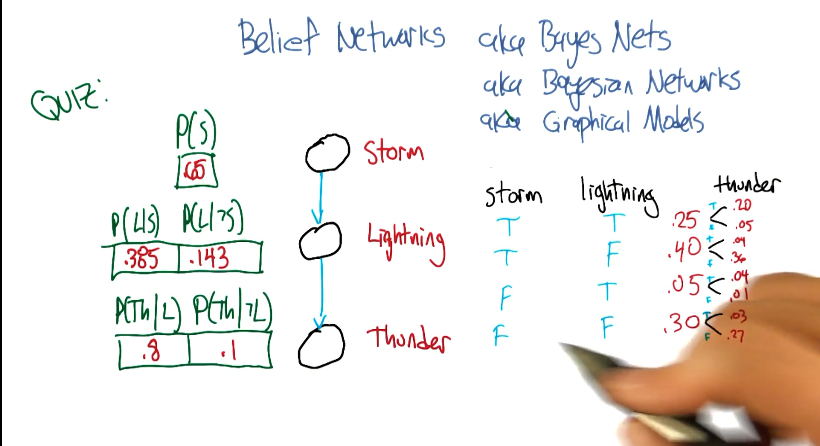 Belief Networks aka Bayes Nets
aka Bayesian Networks
aka Graphical Models
QUIZ:
P(S)
.65
Storm
P(L|S) P(L|¬S)
.385 .143
Lightning
P(Th|L) P(Th|¬L)
.8 .1
Thunder
storm lightning thunder
T T .25 < T .20
F .05
T F .40 < T .04
F .36
F T .05 < T .04
F .01
F F .30 < T .03
F .27